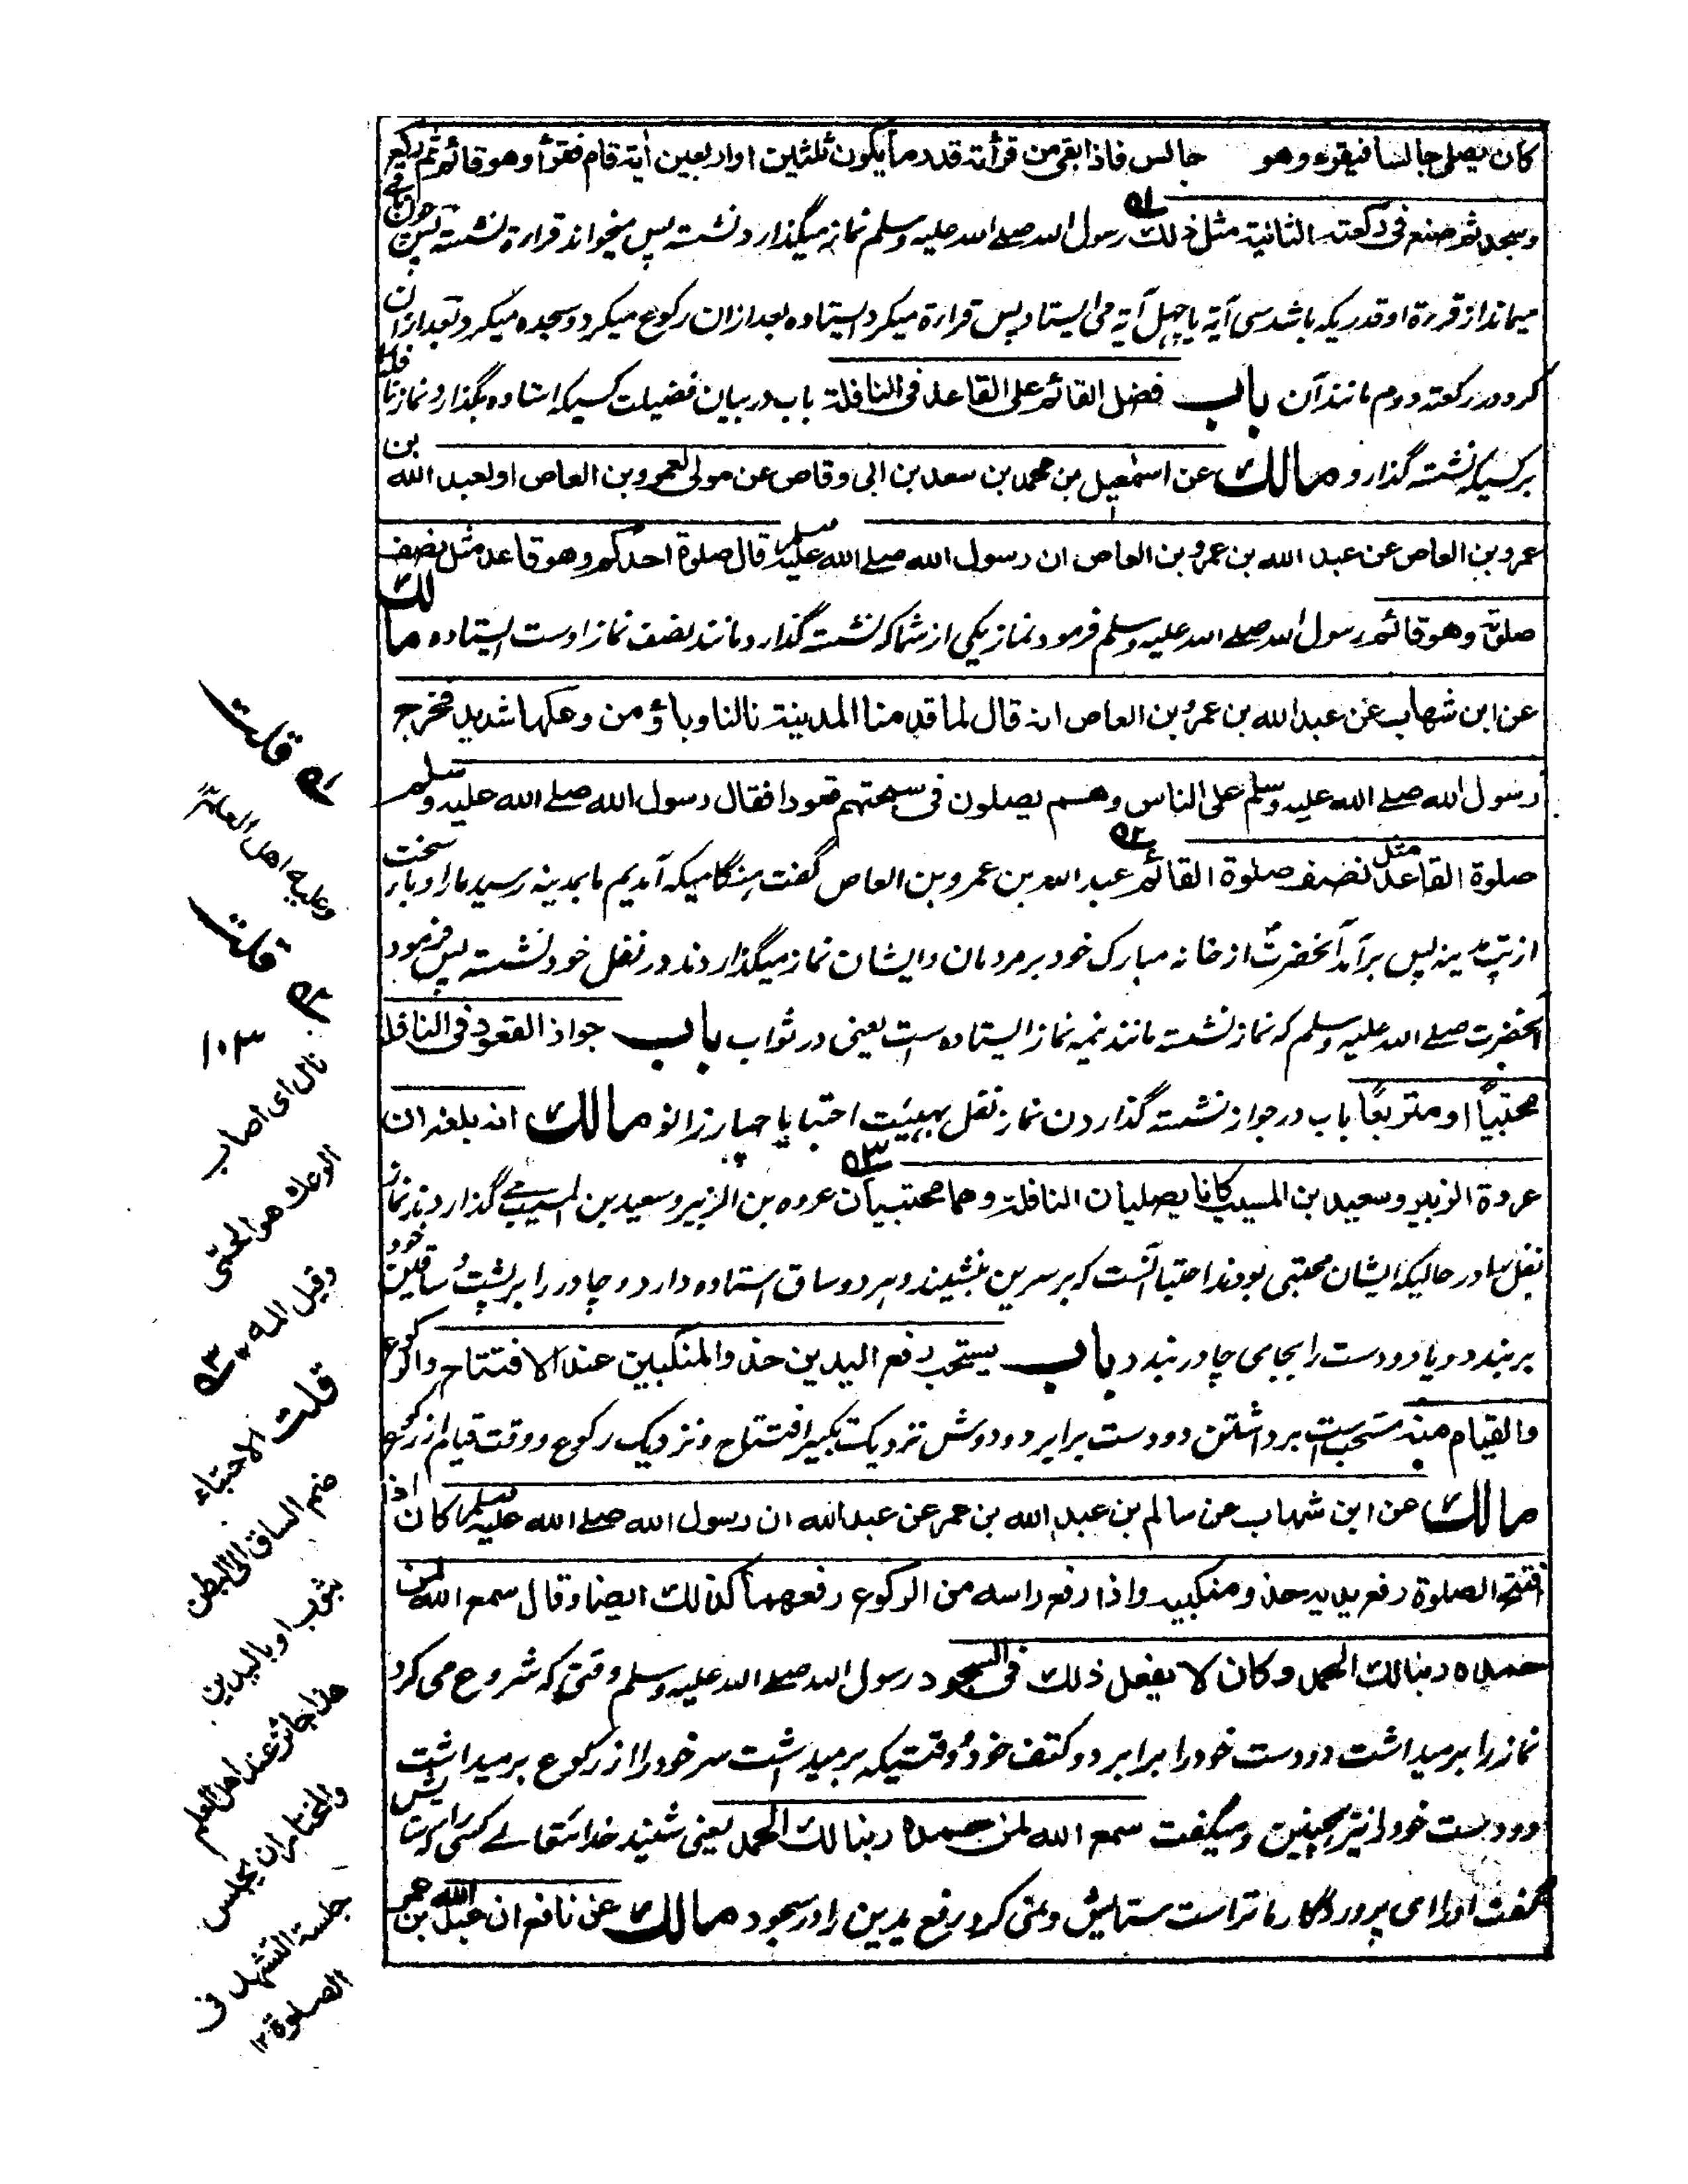 كان يصلى جالسا فيقرء وهو جالس فاذا بقى من قرأته قدر ما يكون ثلثين او اربعين اٰية قام فقرأ وهو قائم ثم ركع
وسجد ثم صنع فى ركعته الثانية مثل ذلك ۵۱ رسول الله صلے الله عليه وسلم نماز ميگذارد نشسته پس ميخواند قراءة نشسته پس چون باقے
ميماند از قرءة او قدريكه باشد سى آية يا چهل آية مى ايستاد پس قراءة ميكرد ايستاده بعد ازان ركوع ميكرد و سجده ميكرد بعد ازان
كرد در ركعته دوم مانند آن باب فضل القائم على القاعد فى النافلة باب در بيان فضيلت كسيكه استاده بگذارد نماز نافله
بر كسيكه نشسته گذارد مالك عن اسمٰعيل بن محمد بن سعد بن ابى وقاص عن مولى لعمرو بن العاص او لعبد الله بن
عمرو بن العاص عن عبد الله بن عمرو بن العاص ان رسول الله صلے الله عليه وسلم قال صلوة احدكم وهو قاعد مثل نصف
صلوته وهو قائم رسول الله صلے الله عليه وسلم فرمود نماز يكى از شما كه نشسته گذارد مانند نصف نماز اوست ايستاده مالك
عن ابن شهاب عن عبد الله بن عمرو بن العاص انه قال لما قدمنا المدينة نالنا وباؤ من وعكها شديد فخرج
رسول الله صلے الله عليه وسلم على الناس وهم يصلون فى سبحتهم قعودا فقال رسول الله صلے الله عليه وسلم
صلوة القاعد مثل نصف صلوة القائم ۵۲ عبد الله بن عمرو بن العاص گفت هنگاميكه آمديم ما بمدينه رسيد ما را وباء سخت
از تپ مدينه پس برآمد آنحضرتؐ از خانه مبارك خود بر مردمان و ايشان نماز ميگذاردند در نفل خود نشسته پس فرمود
آنحضرت صلے الله عليه وسلم كه نماز نشسته مانند نيمه نماز ايستاده ست يعنى در ثواب باب جواز القعود فى النافلة
محتبيًا او متربعًا باب در جواز نشسته گذاردن نماز نفل بهيئت احتبا يا چهار زانو مالك انه بلغه ان
عروة الزبير وسعيد بن المسيب كانا يصليان النافلة وهما محتبيان ۵۳ عروه بن الزبير و سعيد بن المسيب مے گذاردند نماز
نفل را در حاليكه ايشان محتبى بودند احتبا آنست كه بر سرين بنشيند و هر دو ساق استاده دارد و چادر را بر پشت و ساقين خود
بر بندد و يا دو دست را بجاى چادر بندد باب يستحب رفع اليدين حذو المنكبين عند الافتتاح والركوع
والقيام منه مستحب ست برداشتن دو دست برابر دو دوش نزديك تكبير افتتاح و نزديك ركوع و وقت قيام از ركوع
مالك عن ابن شهاب عن سالم بن عبد الله بن عمر عن عبد الله ان رسول الله صلے الله عليه وسلم كان اذا
افتتح الصلوة رفع يديه حذو منكبيه واذا رفع راسه من الركوع رفعهما كذلك ايضا وقال سمع الله لمن
حمده ربنا لك الحمد وكان لا يفعل ذلك فى السجود رسول الله صلے الله عليه وسلم وقتى كه شروع مى كرد
نماز را برميداشت دو دست خود را برابر دو كتف خود و وقتيكه برميداشت سر خود را از ركوع برميداشت
دو دست خود را نيز همچنين و ميگفت سمع الله لمن حمده ربنا لك الحمد يعنى شنيد خدا يتعالے كسى را كه ستايش
گفت او را اى پروردگار ما تراست ستايش و نمى كرد رفع يدين را در سجود مالك عن نافع ان عبد الله بن عمر
۵۱ قلت
وعليه اهل العلم
۵۲ قلت
۱۰۳
نال اى اصاب
الوعك هو الحمّى
وقيل المه ۵۳
قلت الاحتباء
ضم الساق الى البطن
بثوب او باليدين
هذا جائز عند اهل العلم
والمختار ان يجلس
جلسة التشهد فى
الصلوة ۱۲